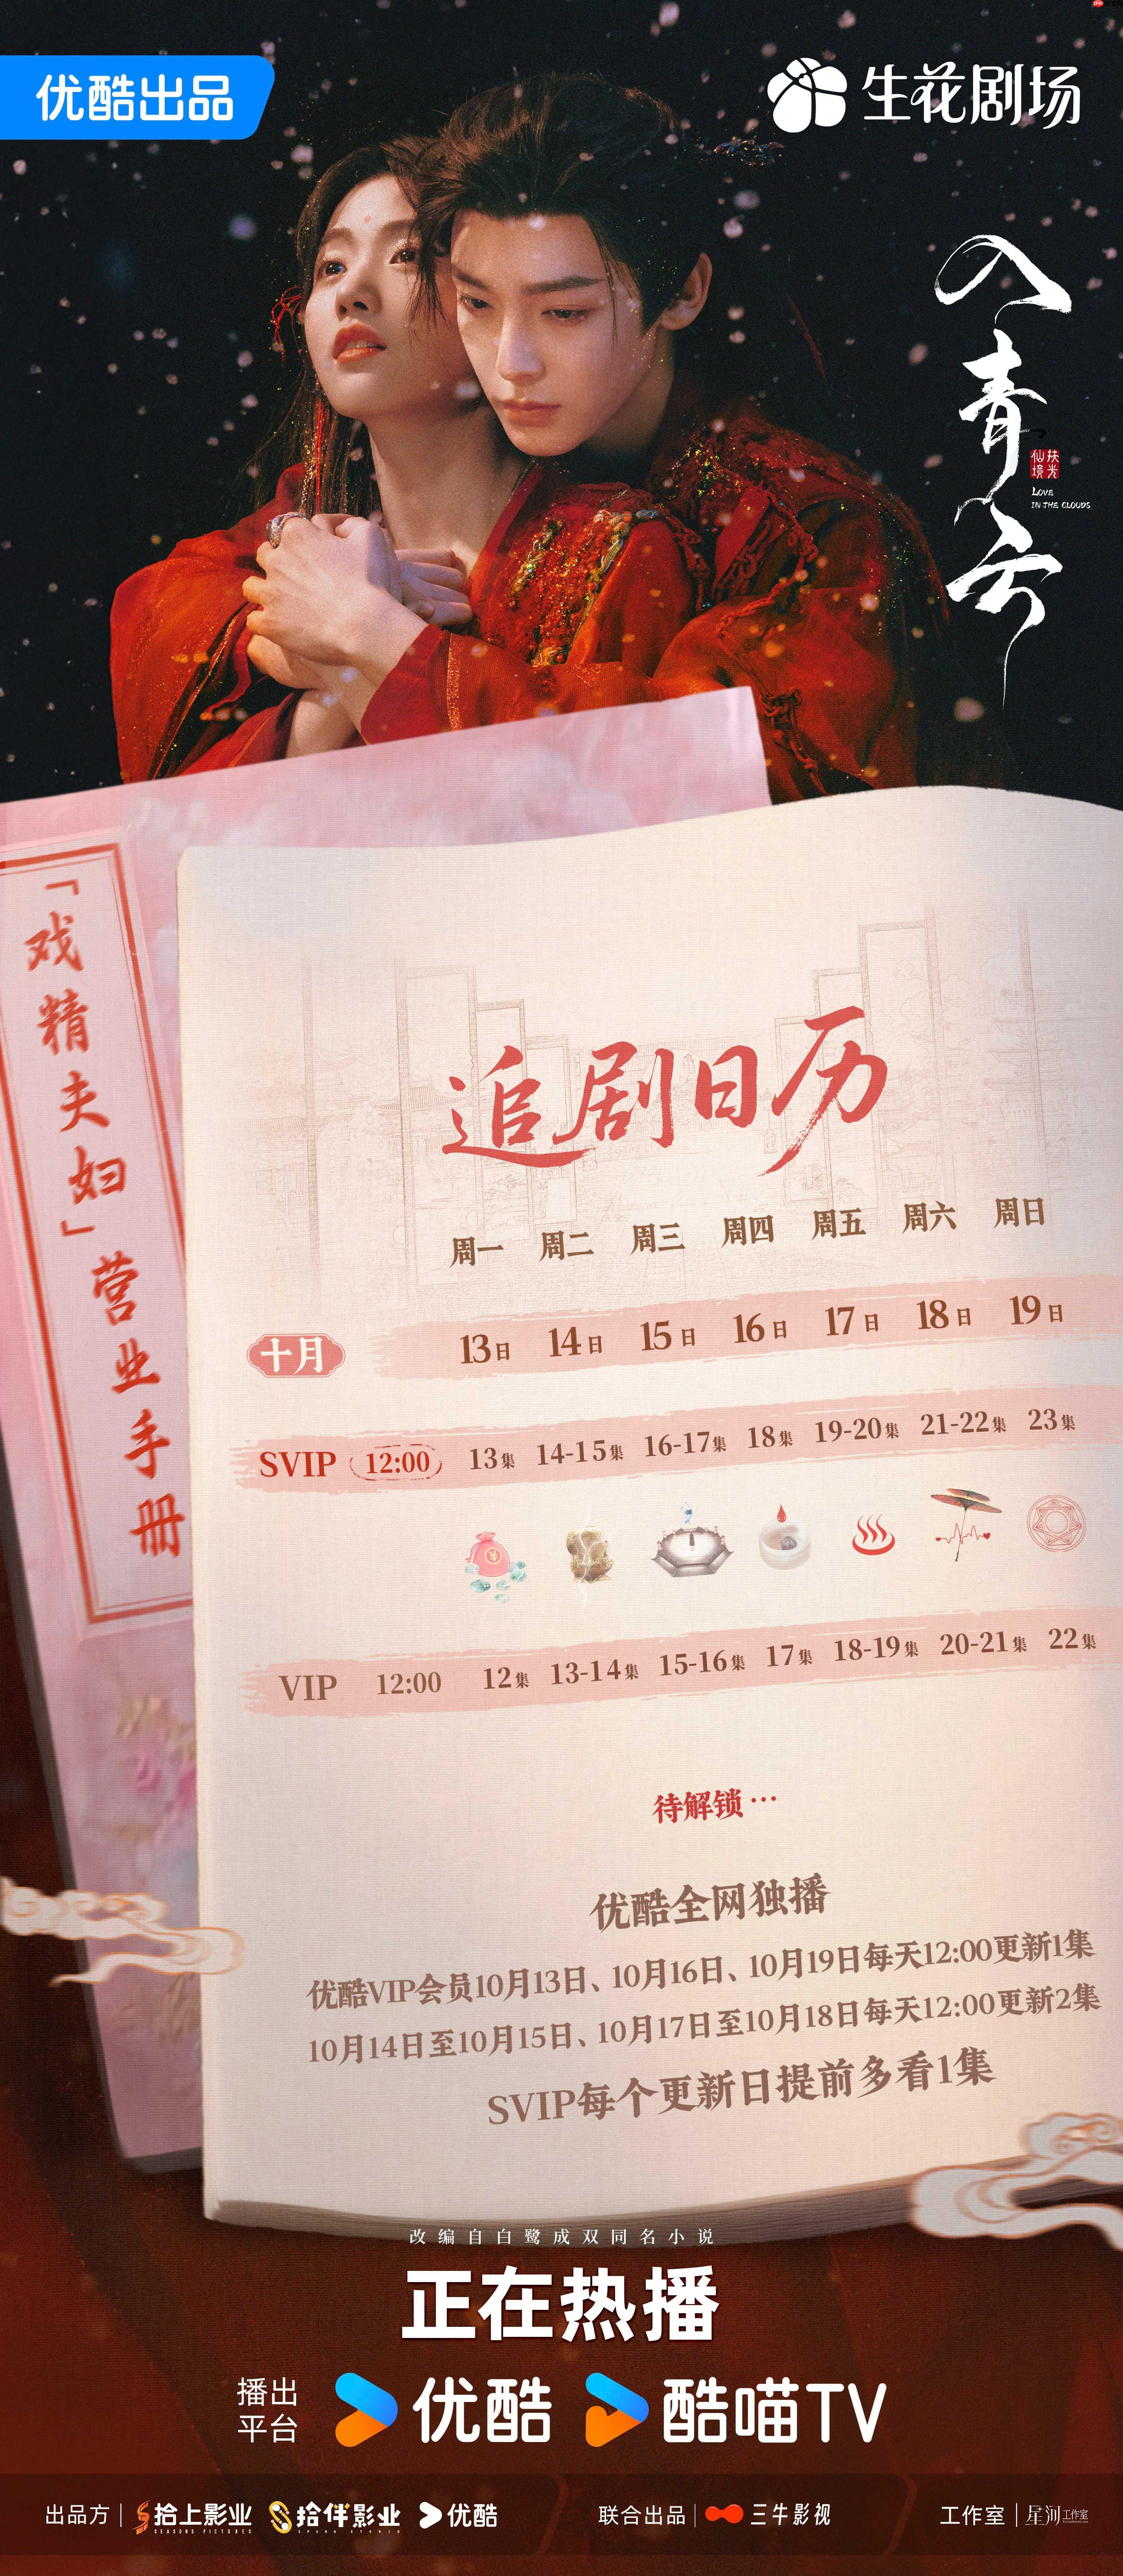 优酷出品
生花剧场
入青云
扶光
仙境
LOVE
IN THE CLOUDS
「戏精夫妇」营业手册
追剧日历
周一 周二 周三 周四 周五 周六 周日
十月 13日 14日 15日 16日 17日 18日 19日
SVIP 12:00 13集 14-15集 16-17集 18集 19-20集 21-22集 23集
VIP 12:00 12集 13-14集 15-16集 17集 18-19集 20-21集 22集
待解锁…
优酷全网独播
优酷VIP会员10月13日、10月16日、10月19日每天12:00更新1集
10月14日至10月15日、10月17日至10月18日每天12:00更新2集
SVIP每个更新日提前多看1集
改编自白鹭成双同名小说
正在热播
播出平台 优酷 酷喵TV
出品方 拾上影业 SEASONS PICTURES 拾伴影业 优酷 联合出品 三牛影视 工作室 星河工作室